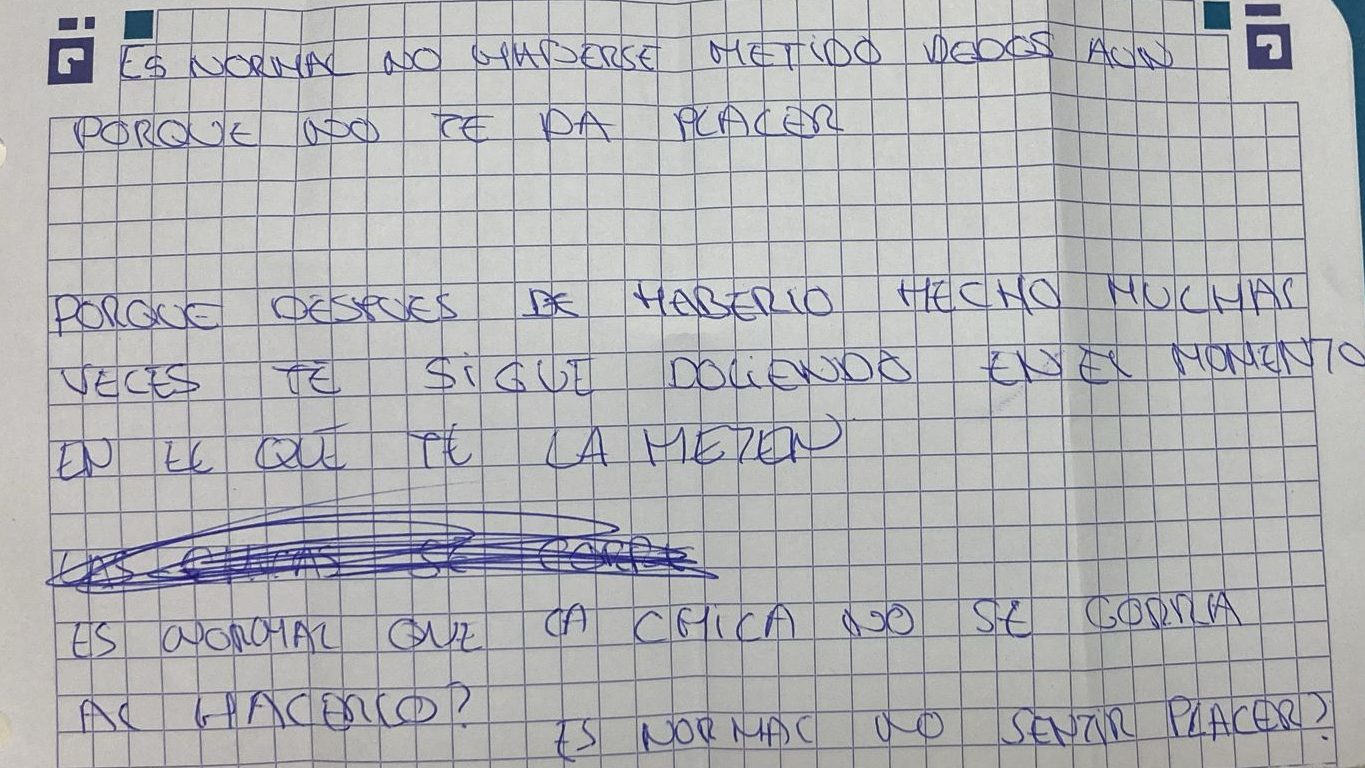 ES NORMAL NO HABERSE METIDO DEDOS AUN
PORQUE NO TE DA PLACER
PORQUE DESPUES DE HABERLO HECHO MUCHAS
VECES TE SIGUE DOLIENDO EN EL MOMENTO
EN EL QUE TE LA METEN
LAS CHICAS SE CORRE
ES NORMAL QUE LA CHICA NO SE CORRA
AL HACERLO?
ES NORMAL NO SENTIR PLACER?